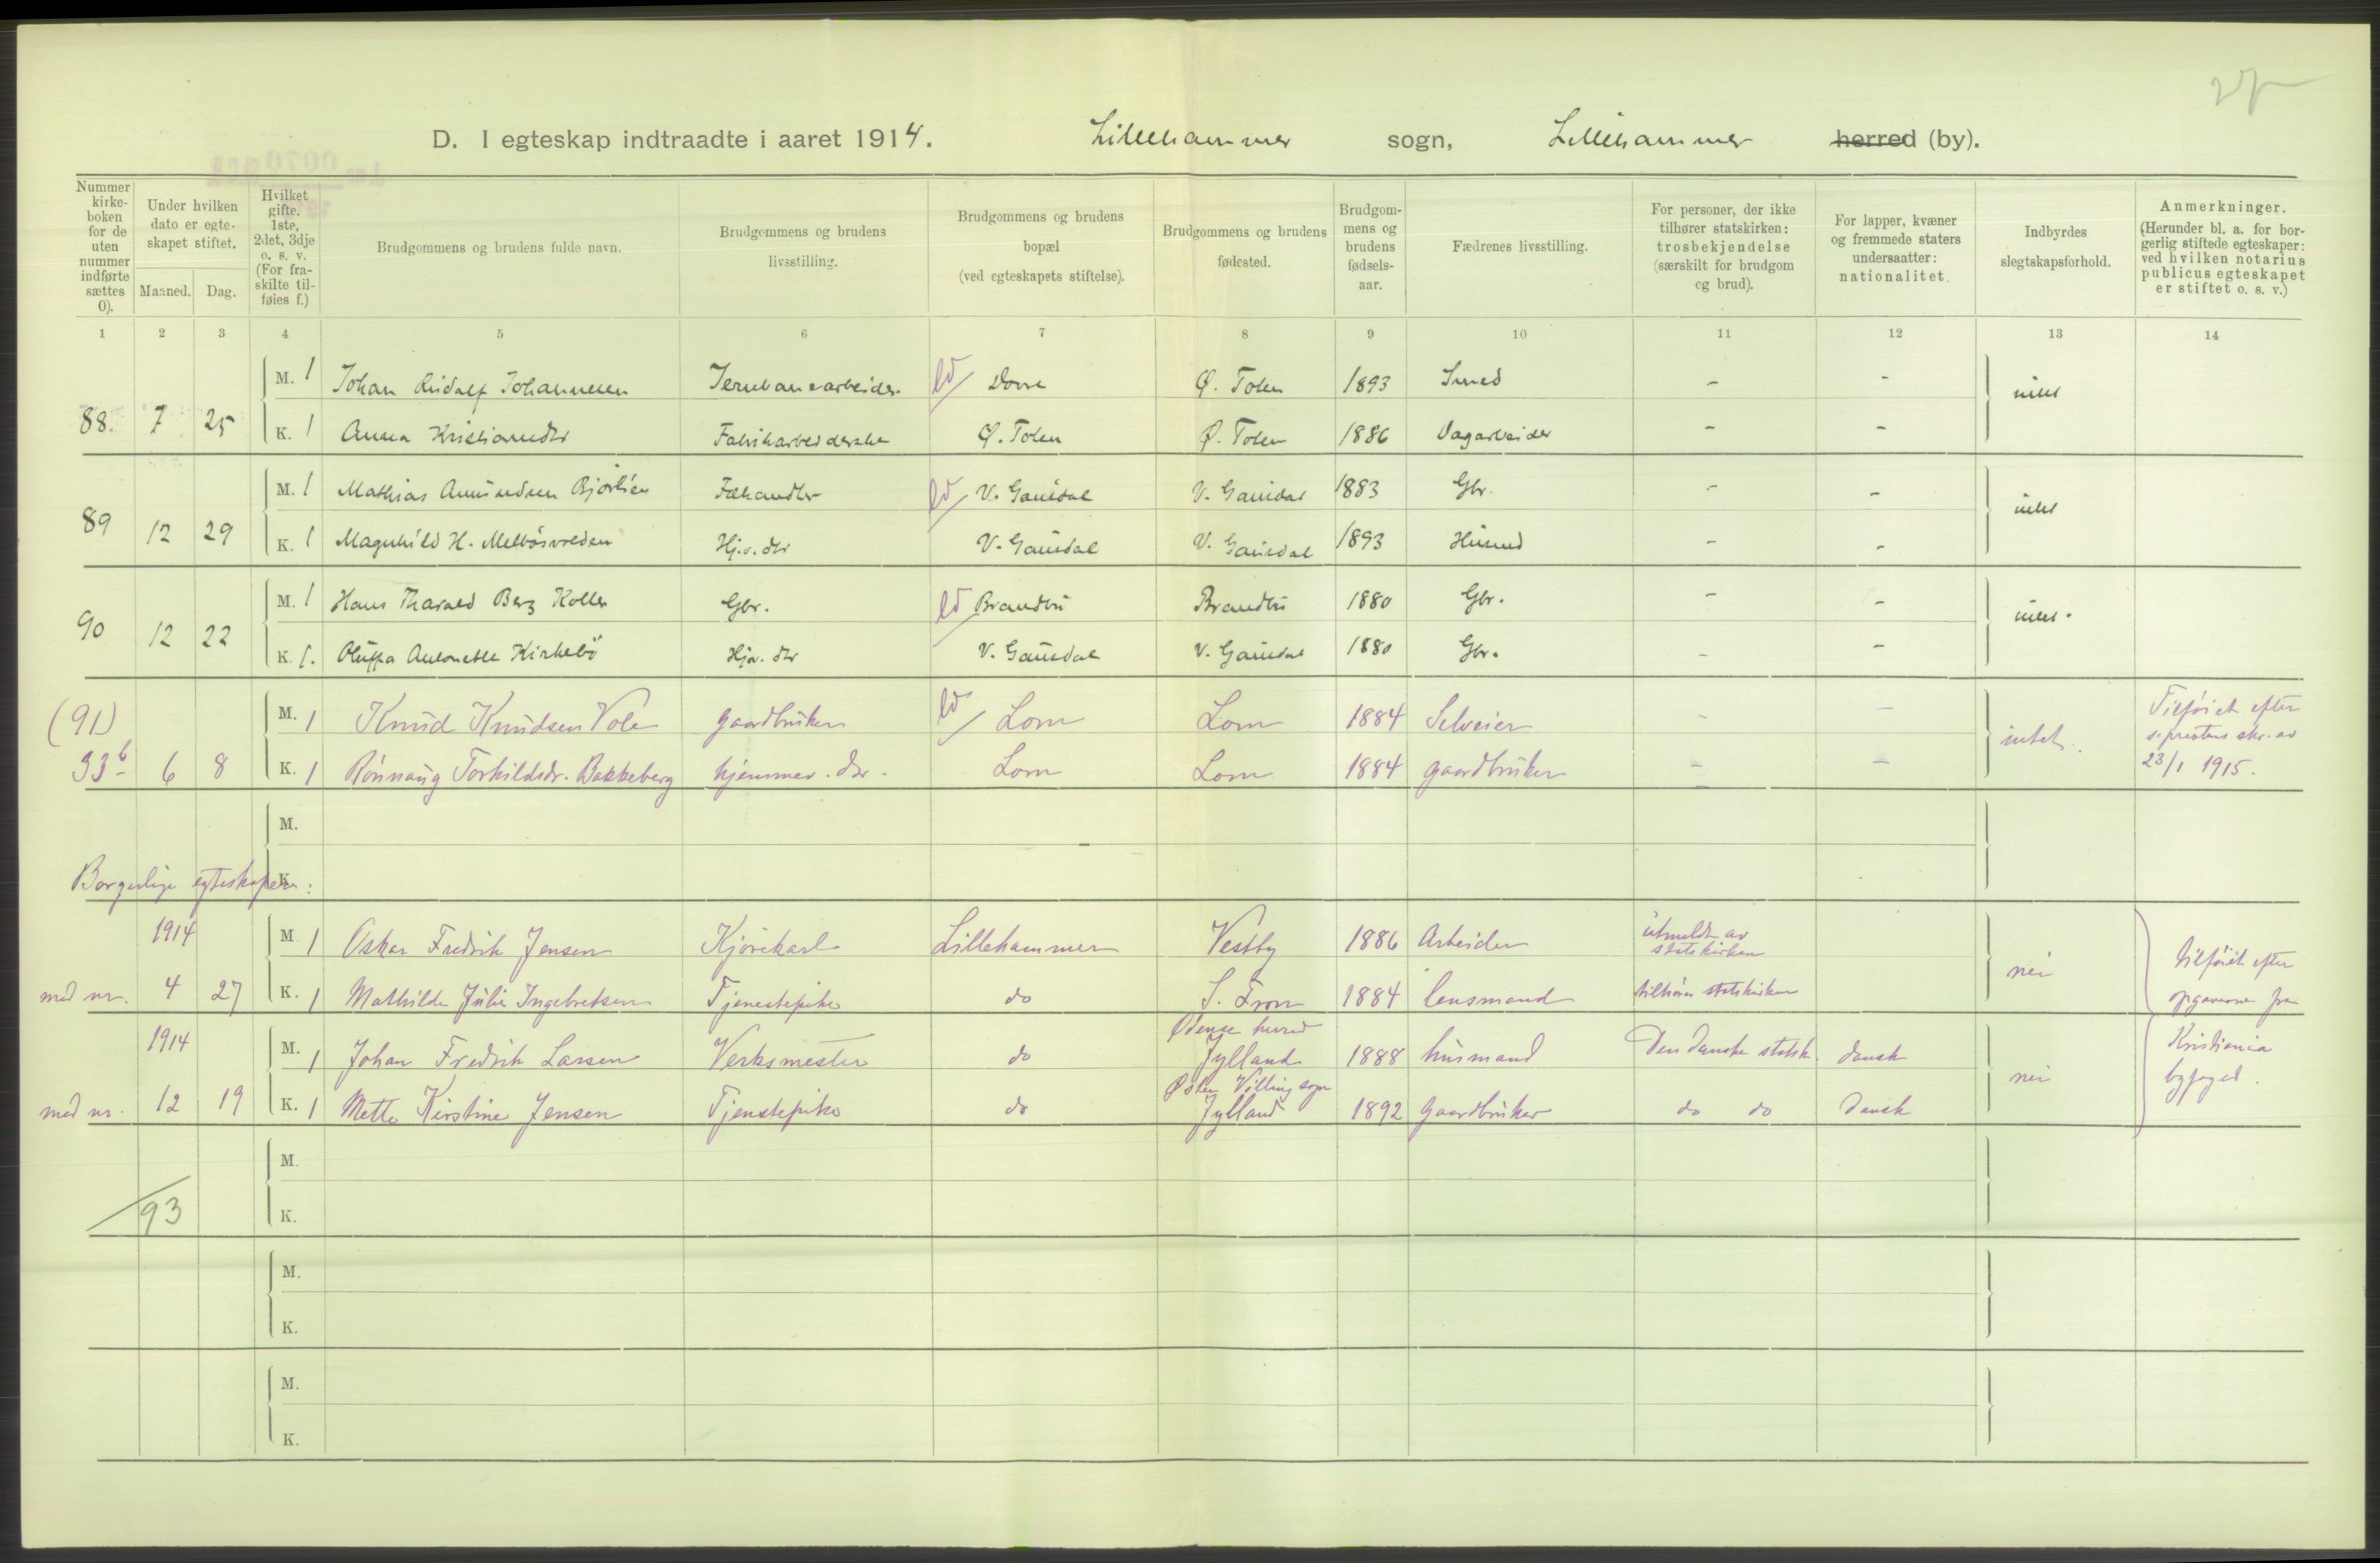 D. I egteskap indtraadte i aaret 1914. Lillehammer sogn, Lillehammer herred (by).
Nummer kirke-boken for de uten nummer indførte sættes 0).
Under hvilken dato er egte-skapet stiftet.
Maaned. Dag.
Hvilket gifte. 1ste, 2det, 3dje o. s. v. (For fra-skilte til-føies f.)
Brudgommens og brudens fulde navn.
Brudgommens og brudens livsstilling.
Brudgommens og brudens bopæl (ved egteskapets stiftelse).
Brudgommens og brudens fødested.
Brudgom-mens og brudens fødsels-aar.
Fædrenes livsstilling.
For personer, der ikke tilhører statskirken: trosbekjendelse (særskilt for brudgom og brud).
For lapper, kvæner og fremmede staters undersaatter: nationalitet.
Indbyrdes slegtskapsforhold.
Anmerkninger. (Herunder bl. a. for bor-gerlig stiftede egteskaper: ved hvilken notarius publicus egteskapet er stiftet o. s. v.)
1 2 3 4 5 6 7 8 9 10 11 12 13 14
M. 1 Johan Rudolf Johannesen Jernbanearbeider Dovre Ø. Toten 1893 Smed - - intet
88. 7 25 K. 1 Anna Kristiansdtr Fabrikarbeiderske Ø. Toten Ø. Toten 1886 Dagarbeider - -
M. 1 Mathias Amundsen Bjørlien Fæhandler V. Gausdal V. Gausdal 1883 Gbr. - - intet
89 12 29 K. 1 Magnhild H. Melbøsvreden Hj.v. dtr V. Gausdal V. Gausdal 1893 Husmd - -
M. 1 Hans Tharald Berg Koller Gbr. Brandbu Brandbu 1880 Gbr. - - intet.
90 12 22 K. 1. Oluffa Antonette Kirkebø Hjv. dtr V. Gausdal V. Gausdal 1880 Gbr. - -
(91) M. 1 Knud Knudsen Vole gaardbruker Lom Lom 1884 Selveier - - intet. Tilføiet efter
33b 6 8 K. 1 Rønnaug Torkildsdr. Bakkeberg hjemmev. dr. Lom Lom 1884 gaardbruker - - s. prestens skr. av
23/1 1915.
M.
K.
Borgerlige egteskaper:
1914 M. 1 Oskar Fredrik Jensen Kjørekarl Lillehammer Vestby 1886 Arbeider utmeldt av statskirken nei tilføiet efter
med nr. 4 27 K. 1 Mathilde Julie Ingebretsen Tjenestepike do S. Fron 1884 lensmand tilhører statskirken opgaverne fra
1914 M. 1 Johan Fredrik Larsen Verksmester do Odense herred Jylland 1888 husmand Den danske statsk. dansk nei Kristiania
med nr. 12 19 K. 1 Mette Kirstine Jensen Tjenestepike do Øster Velling sogn Jylland 1892 Gaardbruker do do Dansk byfoged.
M.
93 K.
M.
K.
M.
K.